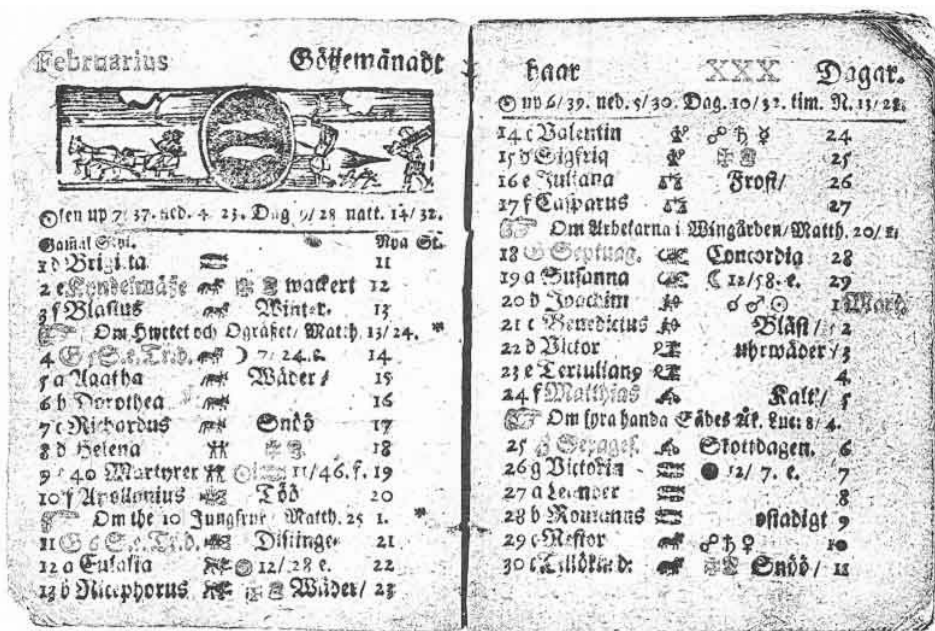 Februarius Göijemånadt
Solen up 7/37. ned. 4. 23. Dag 9/28 natt. 14/32.
Gamal Nya St.
1 d Brigitta 11
2 e wackert 12
3 f Blasius Winter. 13
Om Hwetet och Ogräset/ Matth. 13/24.
4 G 5 S. e. Tr. d. 7/ 24. e. 14
5 a Agatha Wäder/ 15
6 b Dorothea 16
7 c Richardus Snöö 17
8 d Helena 18
9 e 40 Martyrer 11/46. f. 19
10 f Apollonius Töö 20
Om the 10 Jungfrur Matth. 25 1.
11 G 6 S. e. Tr. d. Distingen 21
12 a Eulalia 12/28 e. 22
13 b Nicephorus Wäder/ 23
haar XXX Dagar.
☉ up 6/39. ned. 5/30. Dag. 10/32. tim. N. 13/28.
14 c Valentin ☍ ♄ ☿ 24
15 d Sigfrid 25
16 e Juliana Frost/ 26
17 f Casparus 27
Om Arbetarna i Wingården/ Matth. 20/1.
18 G Septuag. Concordia 28
19 a Susanna ☾ 12/58. e. 29
20 b Joachim ☌ ♂ ☉ 1 Mart.
21 c Benedictus Blåst/ 2
22 d Victor uhrwäder/ 3
23 e Tertulianus 4
24 f Matthias Kalt/ 5
Om fyra handa Sädes Åk. Luc: 8/ 4.
25 G Sexages. Skottdagen. 6
26 g Victoria ● 12/ 7. e. 7
27 a Leander 8
28 b Romanus ostadigt 9
29 c Nestor ☍ ♄ ♀ 10
30 Snöö/ 11